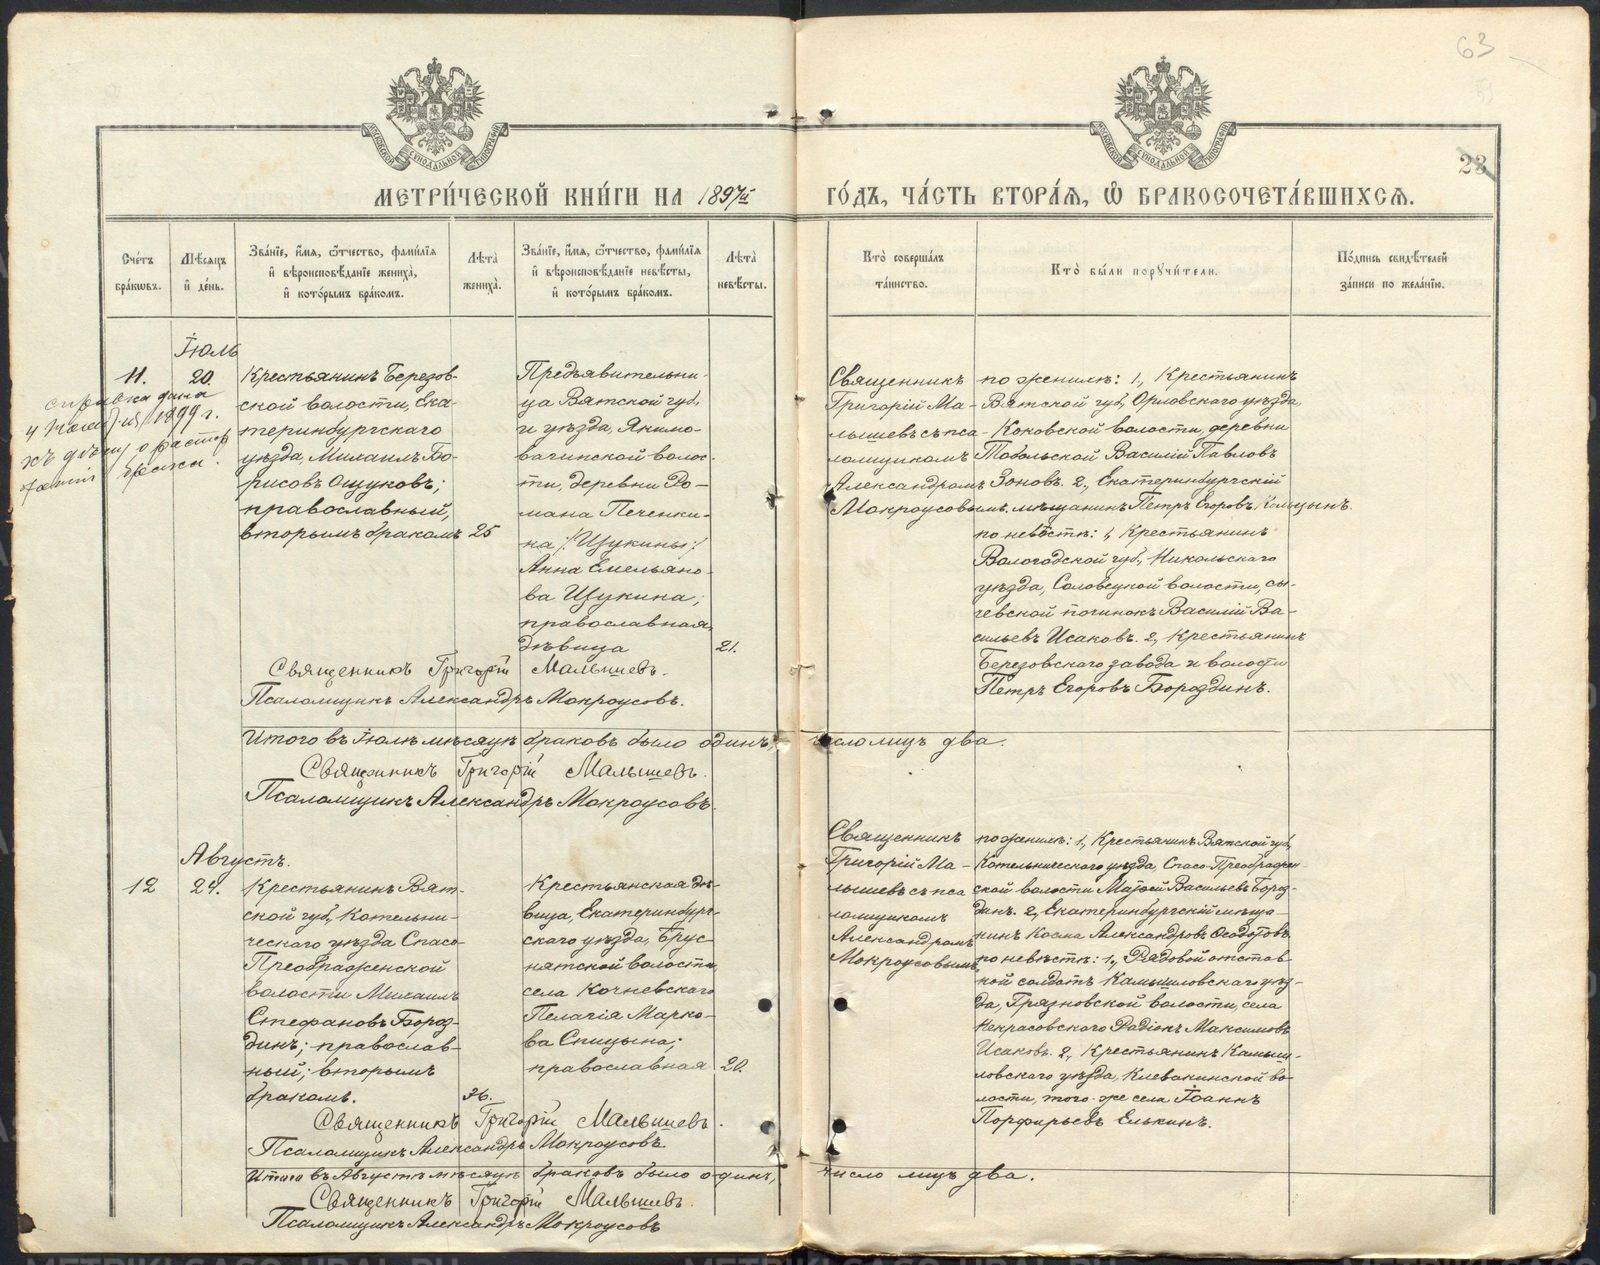 63
28
МЕТРИ́ЧЕСКОЙ КНИ́ГИ НА 1897й ГО́ДЪ, ЧА́СТЬ ВТОРА́Я, Ѡ҆ БРАКОСОЧЕТА́ВШИХСЯ.
Сче́тъ
бра́кѡвъ.
Мѣ́сяцъ
и҆ де́нь.
Зва́нїе, и҆́мя, ѻ҆́тчество, фами́лїя
и҆ вѣроисповѣ́данїе жениха̀,
и҆ кото́рымъ бра́комъ.
Лѣ́та
жениха̀.
Зва́нїе, и҆́мя, ѻ҆́тчество, фами́лїя
и҆ вѣроисповѣ́данїе невѣ́сты,
и҆ кото́рымъ бра́комъ.
Лѣ́та
невѣ́сты.
Кто̀ соверша́лъ
та́инство.
Кто̀ бы́ли поручи́тели.
По́дпись свидѣ́телей
за́писи по жела́нїю.
Іюль
11.
20.
справка дана
4 1899 г.
Крестьянинъ Березов-
ской волости, Ека-
теринбургскаго
уѣзда, Михаилъ Бо-
рисовъ Ощуковъ;
православный,
вторымъ бракомъ
25
Предъявительни-
ца Вятской губ,
и уѣзда, Якимо-
вагинской волос-
ти, деревни Ро-
мана Печенки-
на /:Щукины:/
Анна Емельяно-
ва Щукина;
православная,
дѣвица
21.
Священникъ Григорій Малышевъ.
Псаломщикъ Александръ Мокроусовъ.
Священникъ
Григорій Ма-
лышевъ съ пса-
ломщикомъ
Александромъ
Мокроусовымъ.
по женихѣ: 1, Крестьянинъ
Вятской губ, Орловскаго уѣзда,
Коковской волости, деревни
Тобольской Василій Павловъ
Зоновъ. 2, Екатеринбургскій
мѣщанинъ Петръ Егоровъ Конщынъ.
по невѣстѣ: 1, Крестьянинъ
Вологодской губ, Никольскаго
уѣзда, Соловецкой волости, сы-
чевской починокъ Василій Ва-
сильевъ Исаковъ. 2, Крестьянинъ
Березовскаго завода и волости
Петръ Егоровъ Бороздинъ.
Итого въ Іюлѣ мѣсяцѣ браковъ было одинъ, число лицъ два.
Священникъ Григорій Малышевъ.
Псаломщикъ Александръ Мокроусовъ.
Августъ.
12
24.
Крестьянинъ Вят-
ской губ, Котельни-
ческаго уѣзда Спасо-
Преображенской
волости Михаилъ
Стефановъ Бороз-
динъ; православ-
ный; вторымъ
бракомъ.
26.
Крестьянская дѣ-
вица, Екатеринбург-
скаго уѣзда, Брус-
нятской волости,
села Кочневскаго
Пелагія Марко-
ва Спицына;
православная
20.
Священникъ Григорій Малышевъ.
Псаломщикъ Александръ Мокроусовъ
Священникъ
Григорій Ма-
лышевъ съ пса
ломщикомъ
Александромъ
Мокроусовымъ,
по женихѣ: 1, Крестьянинъ Вятской губ,
Котельническаго уѣзда, Спасо-Преображен-
ской волости Матѳей Васильевъ Бороз-
динъ. 2, Екатеринбургскій мѣща-
нинъ Косма Александровъ Ѳеодотовъ.
по невѣстѣ: 1, Рядовой отстав-
ной солдатъ Камышловскаго уѣз-
да, Грязновской волости, села
Некрасовскаго Родіонъ Максимовъ
Исаковъ. 2, Крестьянинъ Камыш-
ловскаго уѣзда, Клевакинской во-
лости, того же села Іоаннъ
Порфирьевъ Елькинъ.
Итого въ Августѣ мѣсяцѣ браковъ было одинъ, число лицъ два.
Священникъ Григорій Малышевъ.
Псаломщикъ Александръ Мокроусовъ